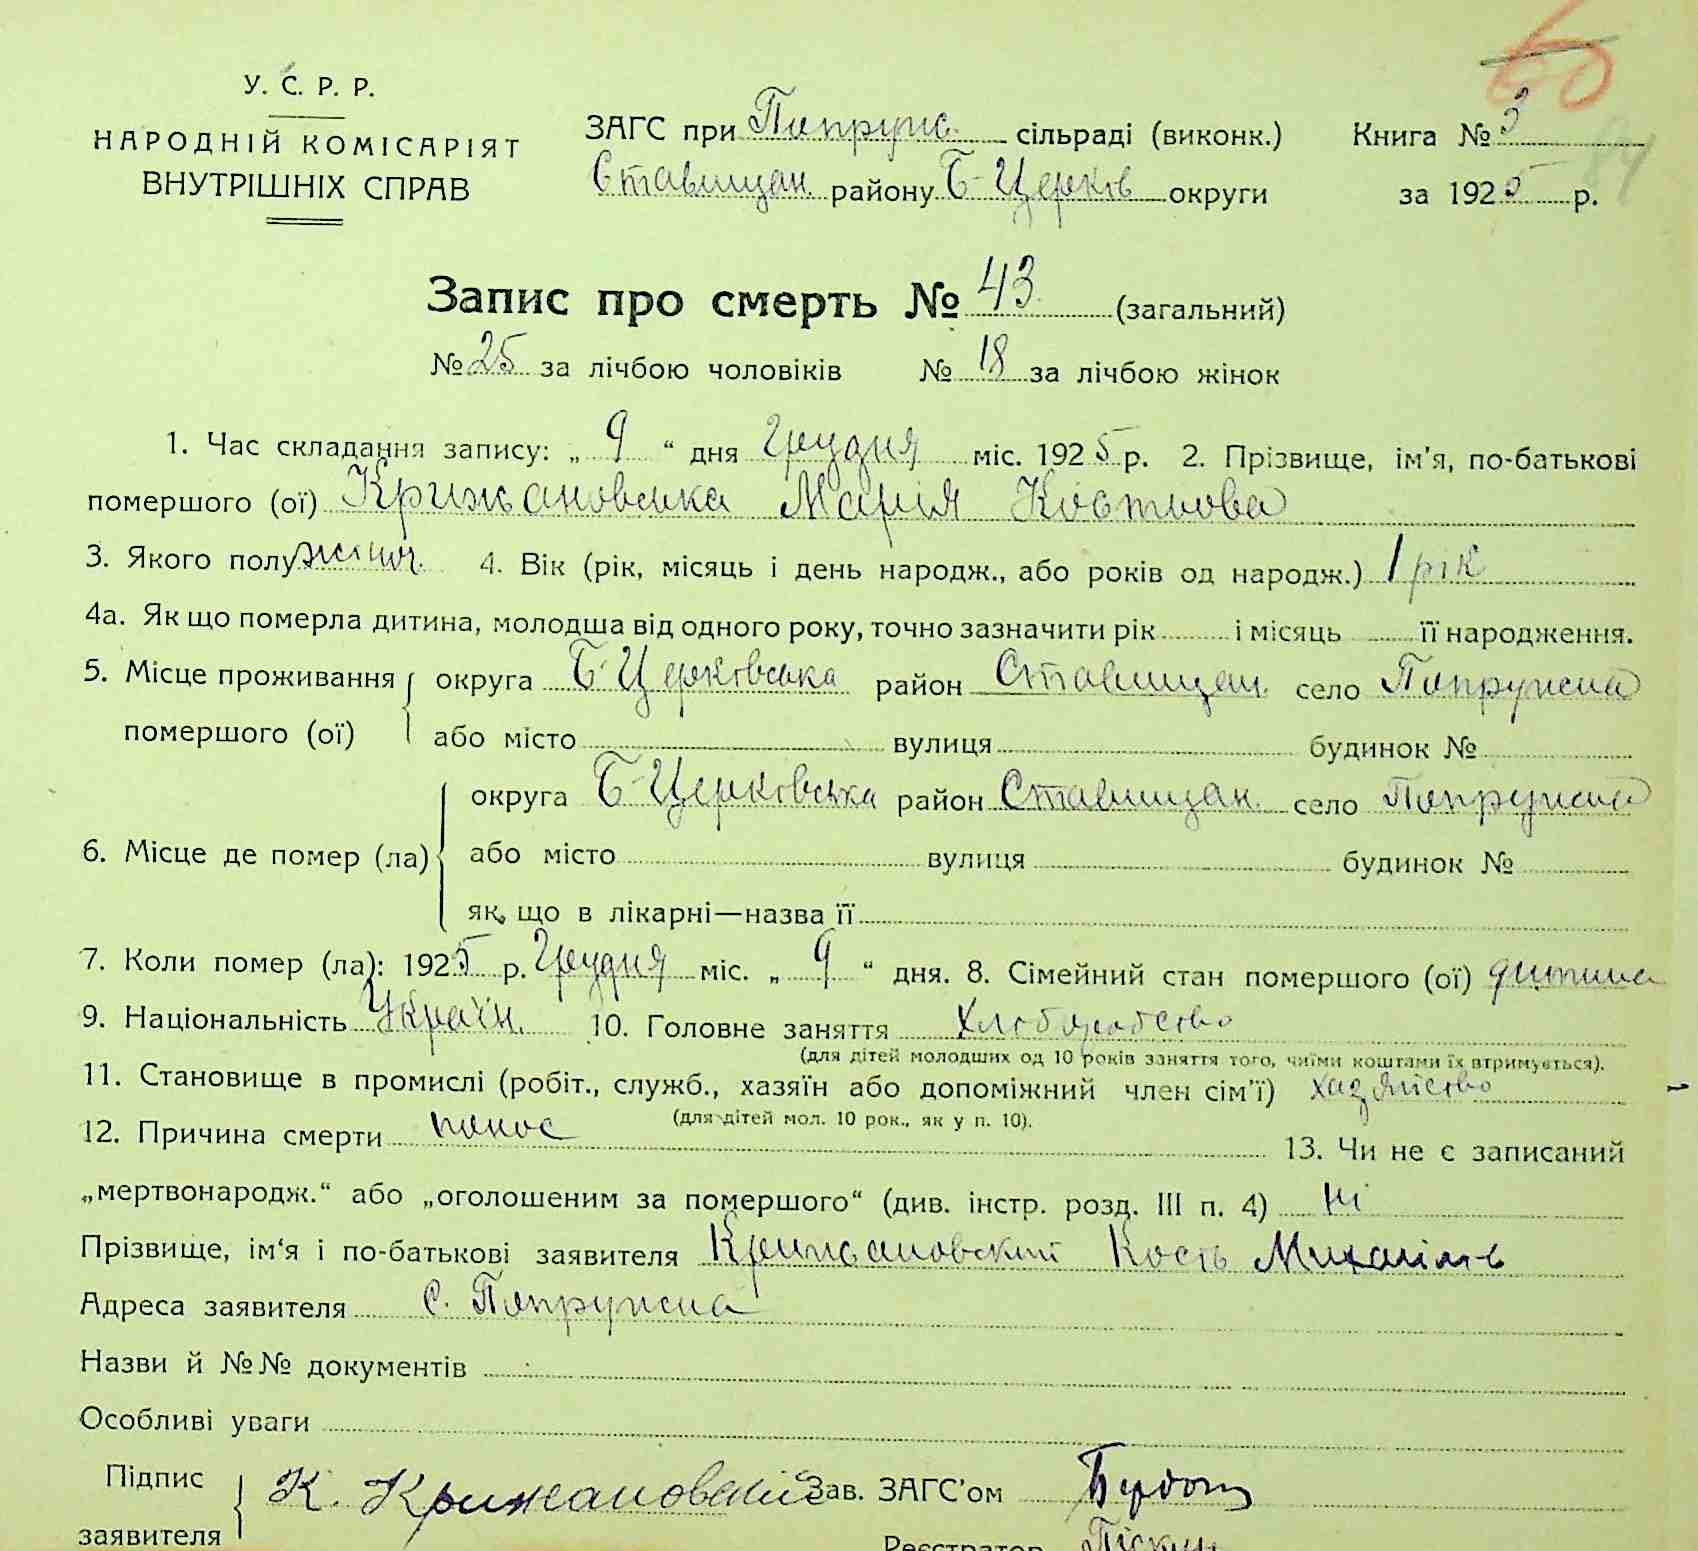 У. С. Р. Р.
НАРОДНІЙ КОМІСАРІЯТ
ВНУТРІШНІХ СПРАВ
60
84
ЗАГС при Попружн. сільраді (виконк.) Книга № 3
Ставищан. району Б-Церків округи за 1925 р.
Запис про смерть № 43 (загальний)
№ 25 за лічбою чоловіків № 18 за лічбою жінок
1. Час складання запису: „ 9 “ дня Грудня міс. 1925 р. 2. Прізвище, ім'я, по-батькові
помершого (ої) Крижановська Марія Костьова
3. Якого полу жіноч. 4. Вік (рік, місяць і день народж., або років од народж.) 1 рік
4а. Як що померла дитина, молодша від одного року, точно зазначити рік і місяць її народження.
5. Місце проживання округа Б-Церковська район Ставищан. село Попружна
помершого (ої) або місто вулиця будинок №
округа Б-Церковська район Ставищан. село Попружна
6. Місце де помер (ла) або місто вулиця будинок №
як що в лікарні—назва її
7. Коли помер (ла): 1925 р. Грудня міс. „ 9 “ дня. 8. Сімейний стан помершого (ої) дитина
9. Національність Україн. 10. Головне заняття хліборобство
(для дітей молодших од 10 років заняття того, чиїми коштами їх втримується).
11. Становище в промислі (робіт., служб., хазяїн або допоміжний член сім'ї) хазяйство
(для дітей мол. 10 рок., як у п. 10).
12. Причина смерти понос 13. Чи не є записаний
„мертвонародж.“ або „оголошеним за помершого“ (див. інстр. розд. III п. 4) ні
Прізвище, ім'я і по-батькові заявителя Крижановский Кость
Адреса заявителя с. Попружна
Назви й №№ документів
Особливі уваги
Підпис К. Крижановский Зав. ЗАГС'ом
заявителя Реєстратор